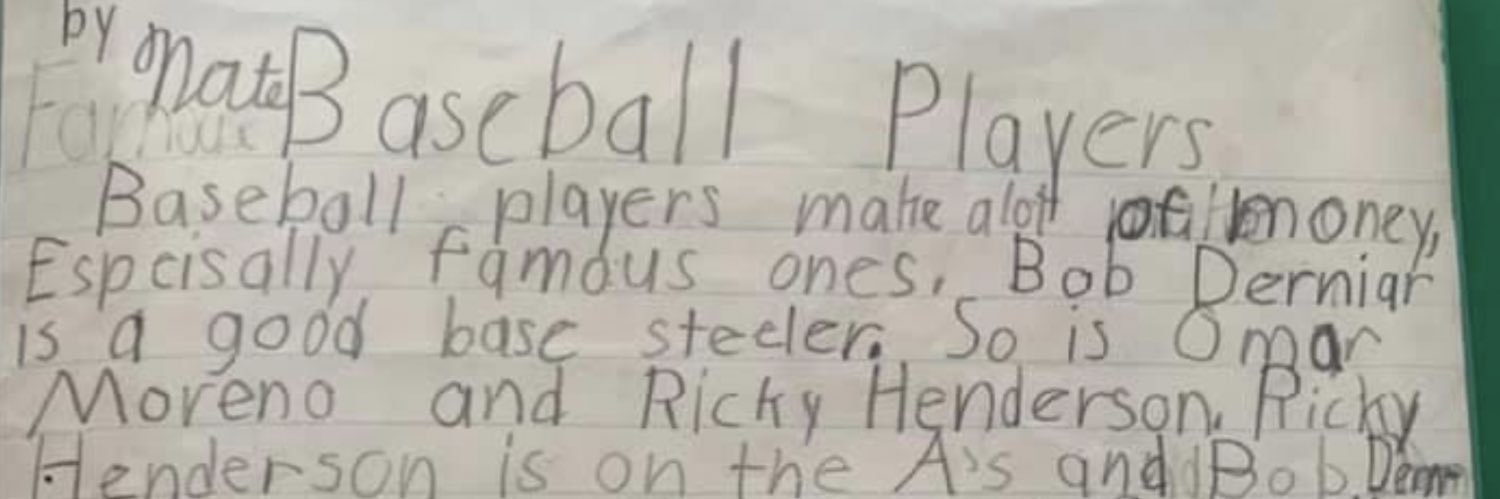 by Nate Baseball Players
Famous
Baseball players make alott of money,
Espcisally famous ones. Bob Derniar
is a good base steeler. So is Omar
Moreno and Ricky Henderson. Ricky
Henderson is on the A's and Bob Dern